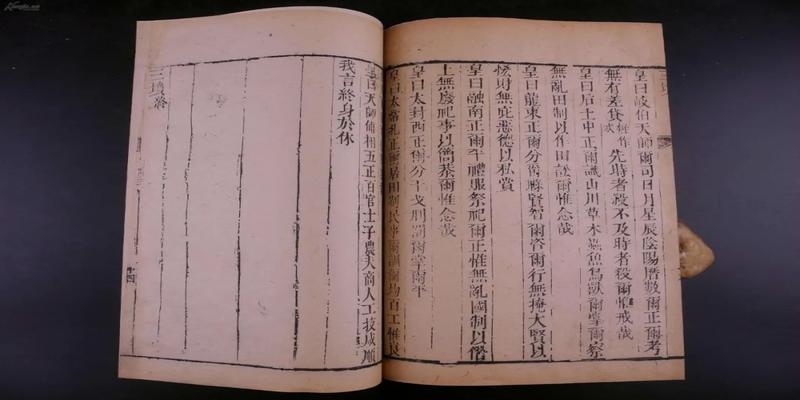 皇曰岐伯天師爾司日月星辰陰陽曆數爾正爾考
無有差貸先時者殺不及時者殺爾惟戒哉
皇曰后土中正爾識山川草木蟲魚鳥獸爾掌爾察
無亂田制以作田訟爾惟念哉
皇曰龍東正爾分爵祿賢智爾咨爾行無掩大賢以
恡財無庇惡德以私賞
皇曰融南正爾平禮服祭祀爾正惟無亂國制以僭
上無廢祀事以簡恭爾惟念哉
皇曰太封西正爾分干戈刑罰爾掌爾平
皇曰太常北正爾居田制民事爾訓爾均百工惟良
皇曰天師輔相五正百官士子農夫商人工技咸順
我言終身於休
三墳終
十四